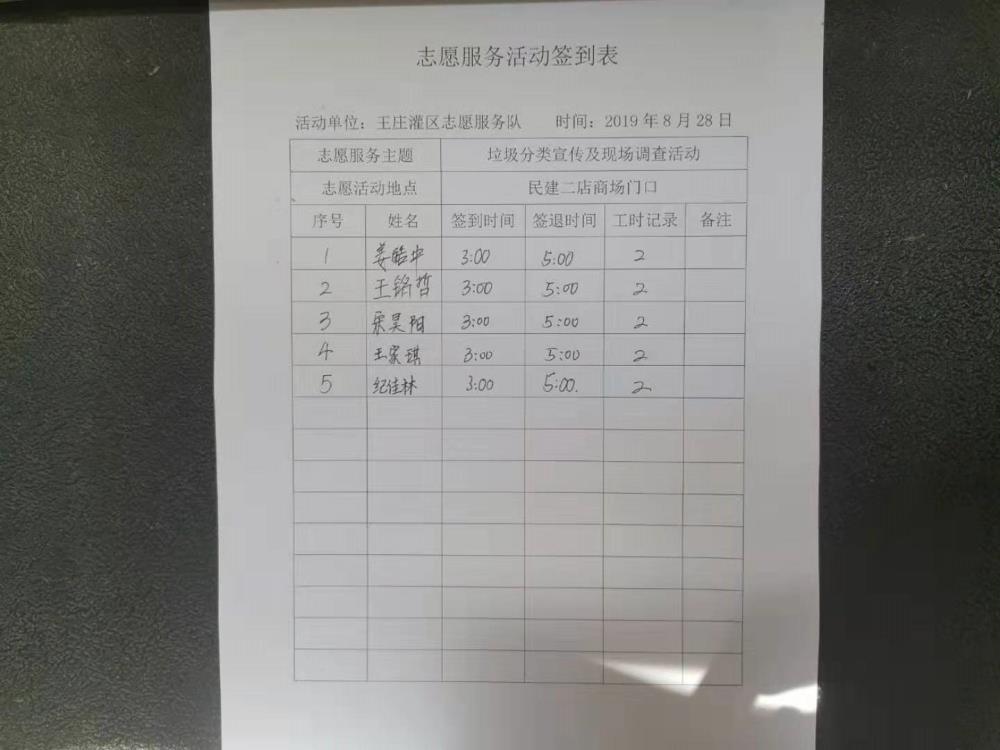 志愿服务活动签到表
活动单位：王庄灌区志愿服务队 时间：2019年8月28日
志愿服务主题 垃圾分类宣传及现场调查活动
志愿活动地点 民建二店商场门口
序号 姓名 签到时间 签退时间 工时记录 备注
1 姜皓中 3:00 5:00 2
2 王铭哲 3:00 5:00 2
3 宋昊阳 3:00 5:00 2
4 王家琪 3:00 5:00 2
5 纪佳林 3:00 5:00. 2